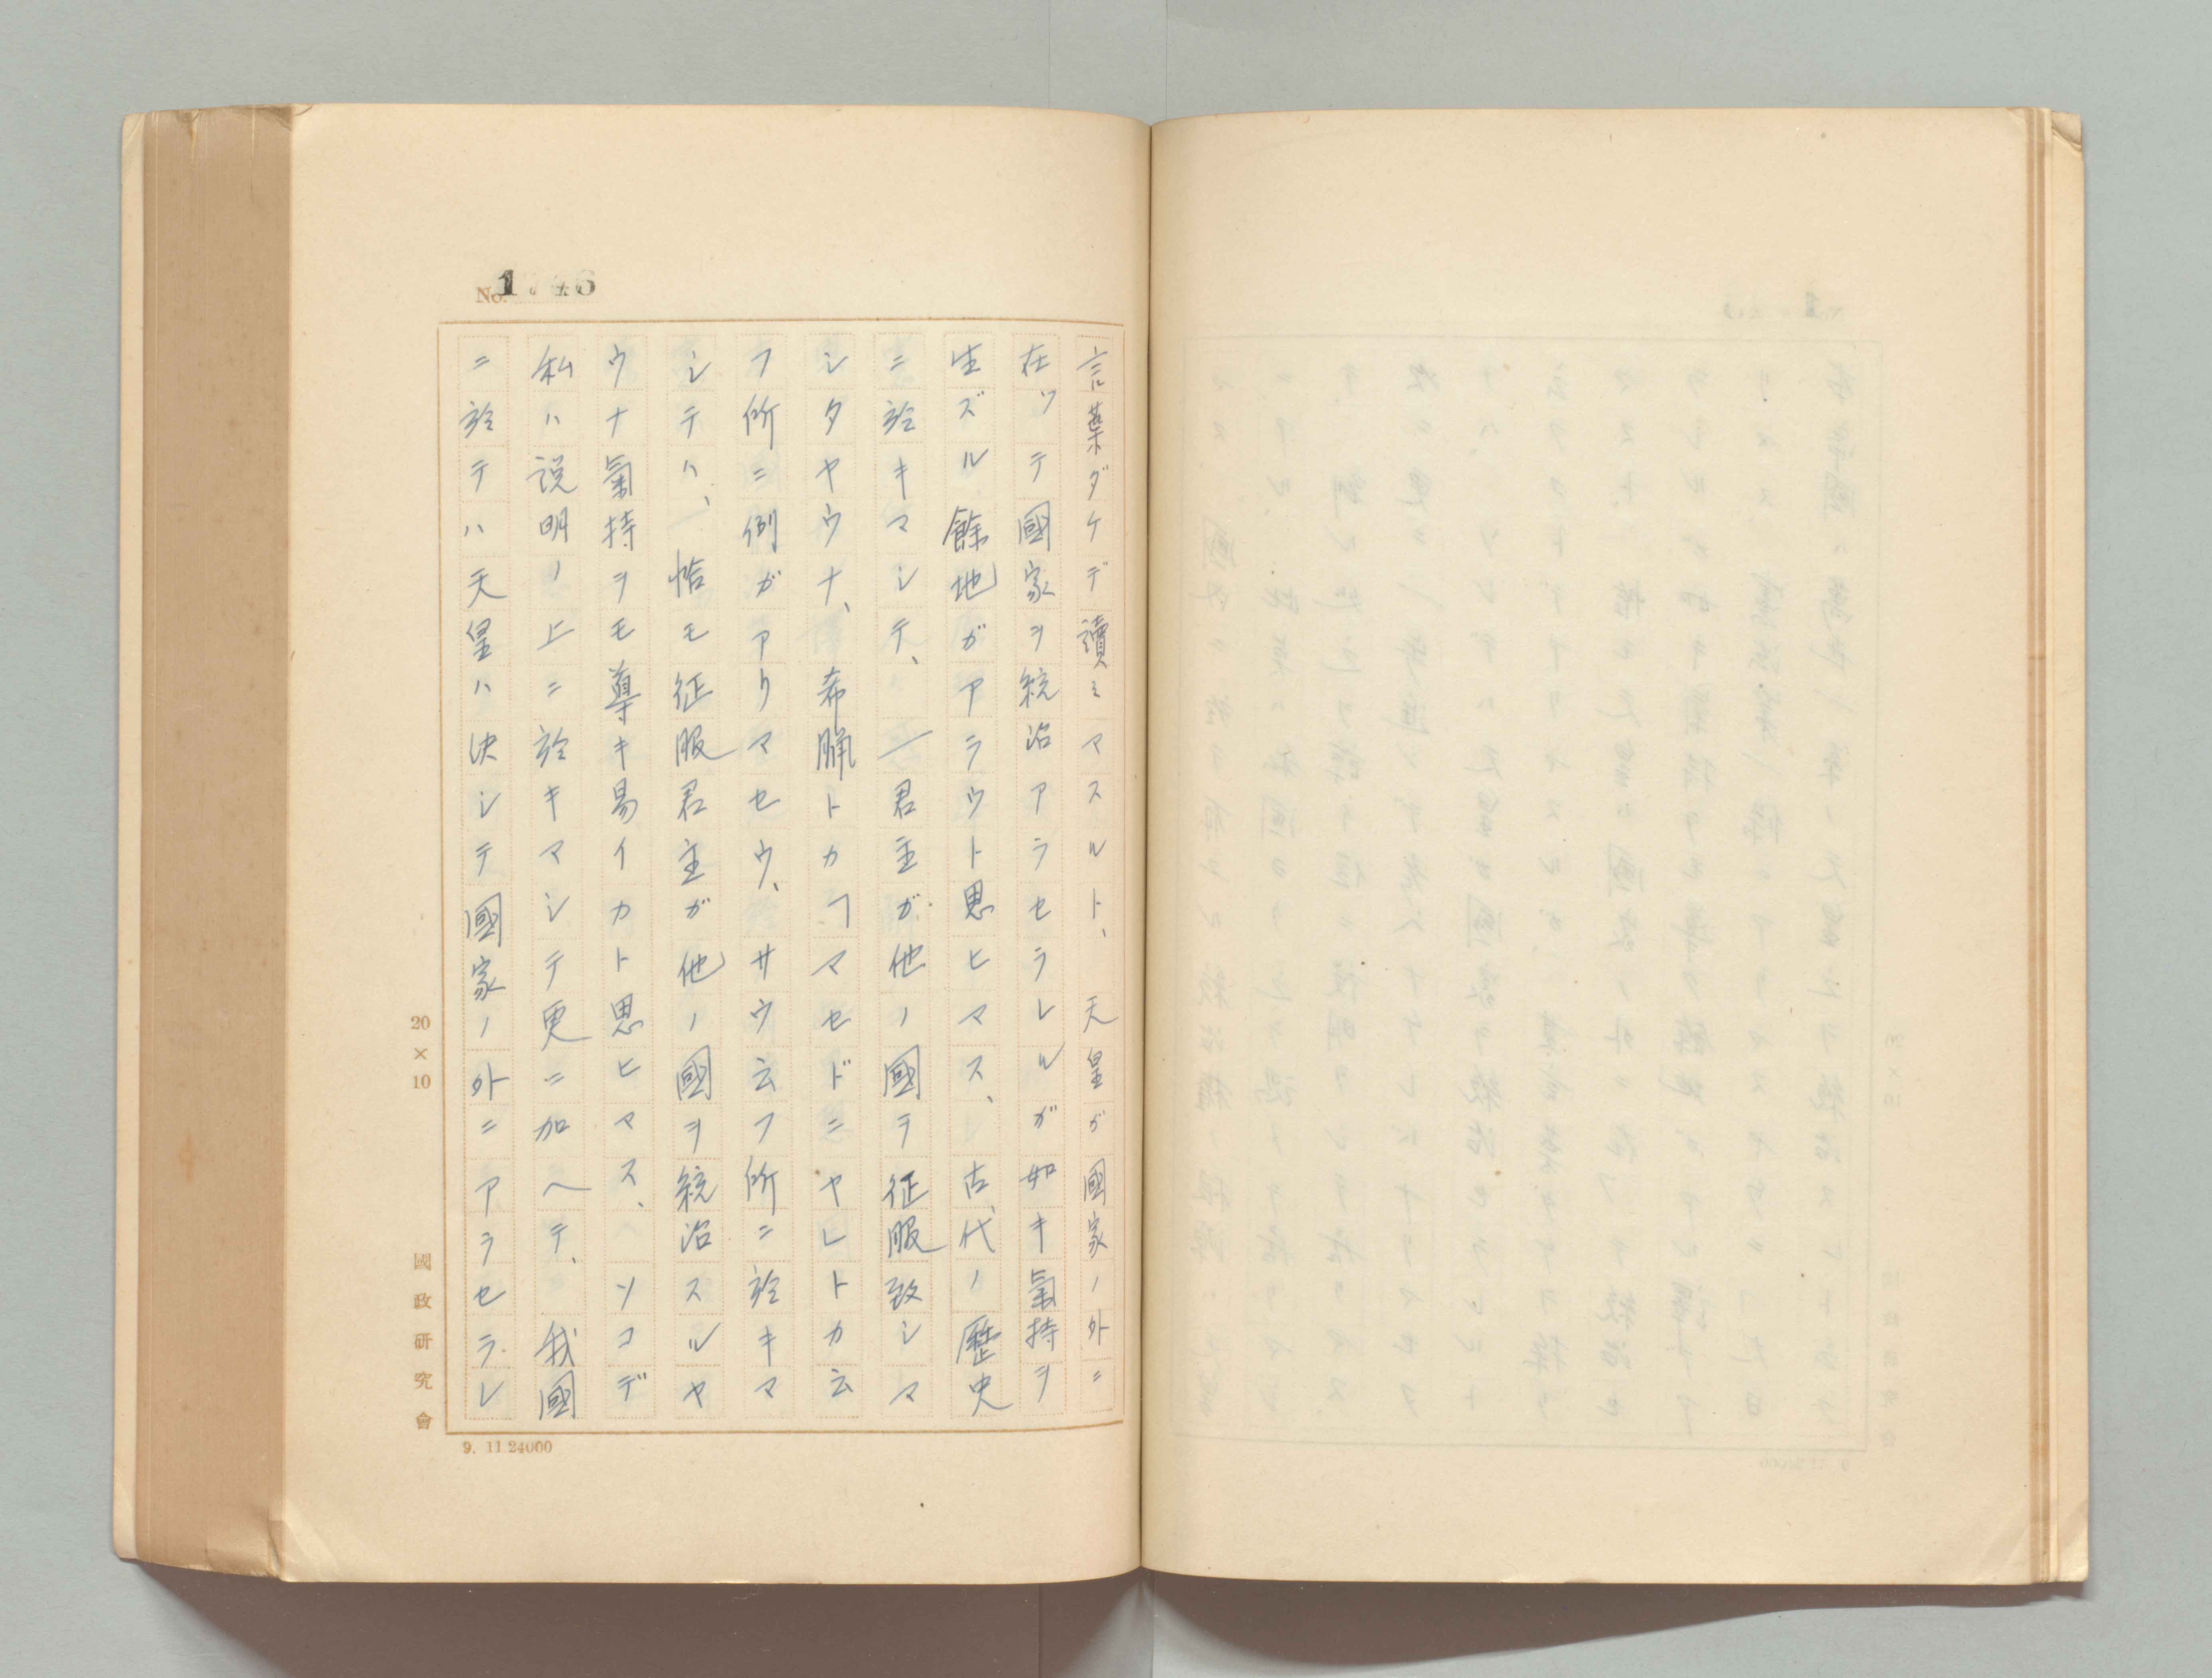 No. 1746
言葉ダケデ讀ミマスルト、天皇ガ國家ノ外ニ
在ツテ國家ヲ統治アラセラレルガ如キ氣持ヲ
生ズル餘地ガアラウト思ヒマス、古代ノ歷史
ニ於キマシテ、一君主ガ他ノ國ヲ征服致シマ
シタヤウナ、希臘トカ「マセドニヤ」トカ云
フ所ニ例ガアリマセウ、サウ云フ所ニ於キマ
シテハ、恰モ征服君主ガ他ノ國ヲ統治スルヤ
ウナ氣持ヲモ導キ易イカト思ヒマス、ソコデ
私ハ説明ノ上ニ於キマシテ更ニ加ヘテ、我國
ニ於テハ天皇ハ決シテ國家ノ外ニアラセラレ
20×10
國政研究會
9. 11 24000